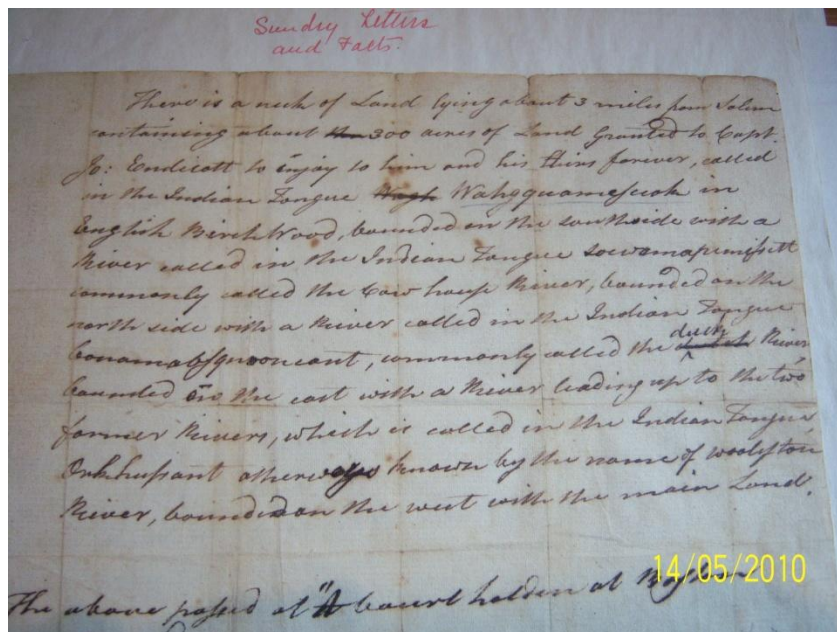 Sundry Letters
and Facts.
There is a neck of Land lying about 3 miles from Salem
containing about 300 acres of Land Granted to Capt.
Jo: Endicott to enjoy to him and his Heirs forever, called
in the Indian Tongue Wahqquamesucok in
English Birch Wood, bounded on the south side with a
River called in the Indian Tongue
commonly called the Cow house River, bounded on the
north side with a River called in the Indian Tongue
commonly called the duck River,
bounded on the east with a River leading up to the two
former Rivers, which is called in the Indian Tongue
otherways known by the name of
River, bounded on the west with the main Land.
14/05/2010
The above passed at a Court holden at